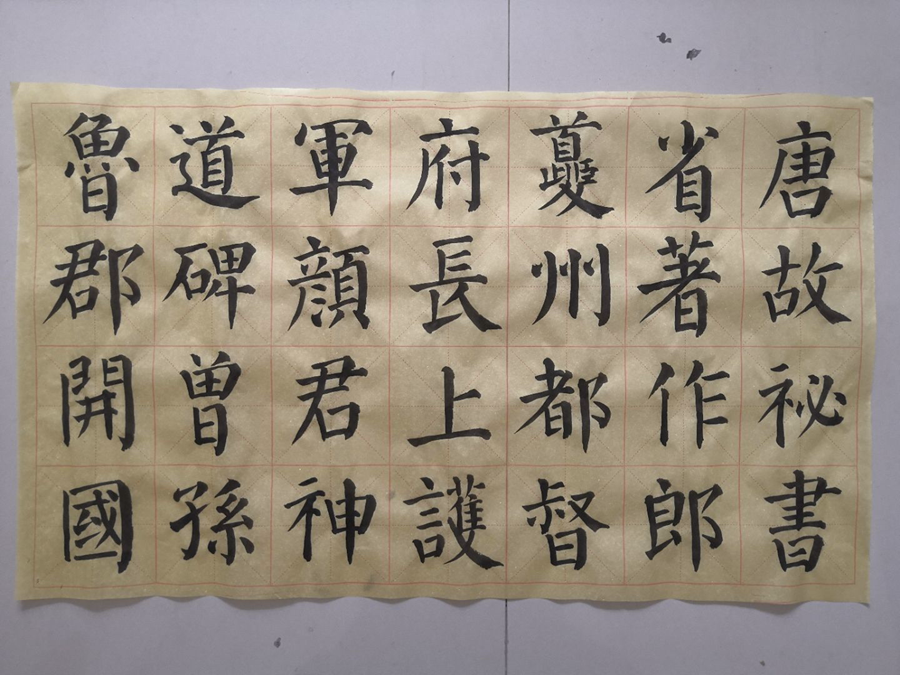 唐故祕書
省著作郎
夔州都督
府長上護
軍顏君神
道碑曾孫
魯郡開國